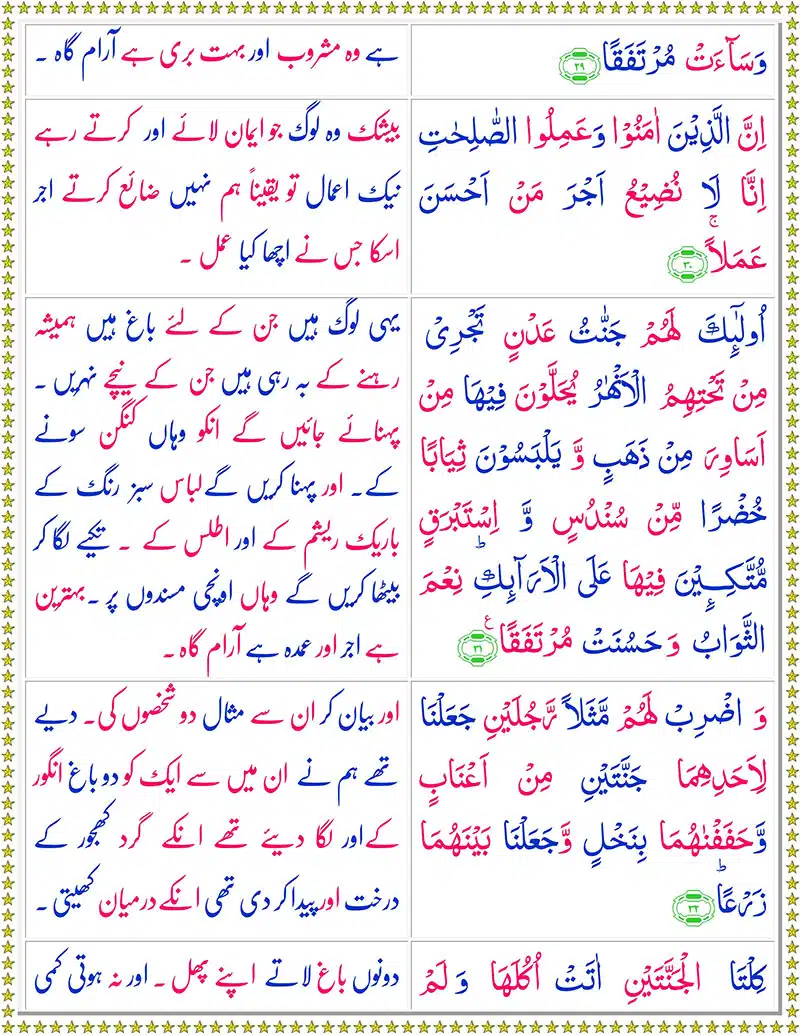 وَسَآءَتْ مُرْتَفَقًا ﴿۲۹﴾
ہے وہ مشروب اور بہت بری ہے آرام گاہ ۔
اِنَّ الَّذِيْنَ اٰمَنُوْا وَعَمِلُوا الصّٰلِحٰتِ
اِنَّا لَا نُضِيْعُ اَجْرَ مَنْ اَحْسَنَ
عَمَلاًۚ ﴿۳۰﴾
بیشک وہ لوگ جو ایمان لائے اور کرتے رہے
نیک اعمال تو یقیناً ہم نہیں ضائع کرتے اجر
اسکا جس نے اچھا کیا عمل ۔
اُولٰٓئِكَ لَهُمْ جَنّٰتُ عَدْنٍ تَجْرِىْ
مِنْ تَحْتِهِمُ الْاَنْهٰرُ يُحَلَّوْنَ فِيْهَا مِنْ
اَسَاوِرَ مِنْ ذَهَبٍ وَّ يَلْبَسُوْنَ ثِيَابًا
خُضْرًا مِّنْ سُنْدُسٍ وَّ اِسْتَبْرَقٍ
مُّتَّكِـِٕيْنَ فِيْهَا عَلَى الْاَرَآٮِٕكِؕ نِعْمَ
الثَّوَابُ وَحَسُنَتْ مُرْتَفَقًا ﴿۳۱﴾ ع
یہی لوگ ہیں جن کے لئے باغ ہیں ہمیشہ
رہنے کے بہ رہی ہیں جن کے نیچے نہریں ۔
پہنائے جائیں گے انکو وہاں کنگن سونے
کے۔ اور پہنا کریں گے لباس سبز رنگ کے
باریک ریشم کے اور اطلس کے ۔ تکیے لگا کر
بیٹھا کریں گے وہاں اونچی مسندوں پر ۔ بہترین
ہے اجر اور عمدہ ہے آرام گاہ ۔
وَ اضْرِبْ لَهُمْ مَّثَلاً رَّجُلَيْنِ جَعَلْنَا
لِاَحَدِهِمَا جَنَّتَيْنِ مِنْ اَعْنَابٍ
وَّحَفَفْنٰهُمَا بِنَخْلٍ وَّجَعَلْنَا بَيْنَهُمَا
زَرْعًاؕ ﴿۳۲﴾
اور بیان کر ان سے مثال دو شخصوں کی۔ دیے
تھے ہم نے ان میں سے ایک کو دو باغ انگور
کے اور لگا دیئے تھے انکے گرد کھجور کے
درخت اور پیدا کر دی تھی انکے درمیان کھیتی ۔
كِلْتَا الْجَنَّتَيْنِ اٰتَتْ اُكُلَهَا وَ لَمْ
دونوں باغ لاتے اپنے پھل ۔ اور نہ ہوتی کمی